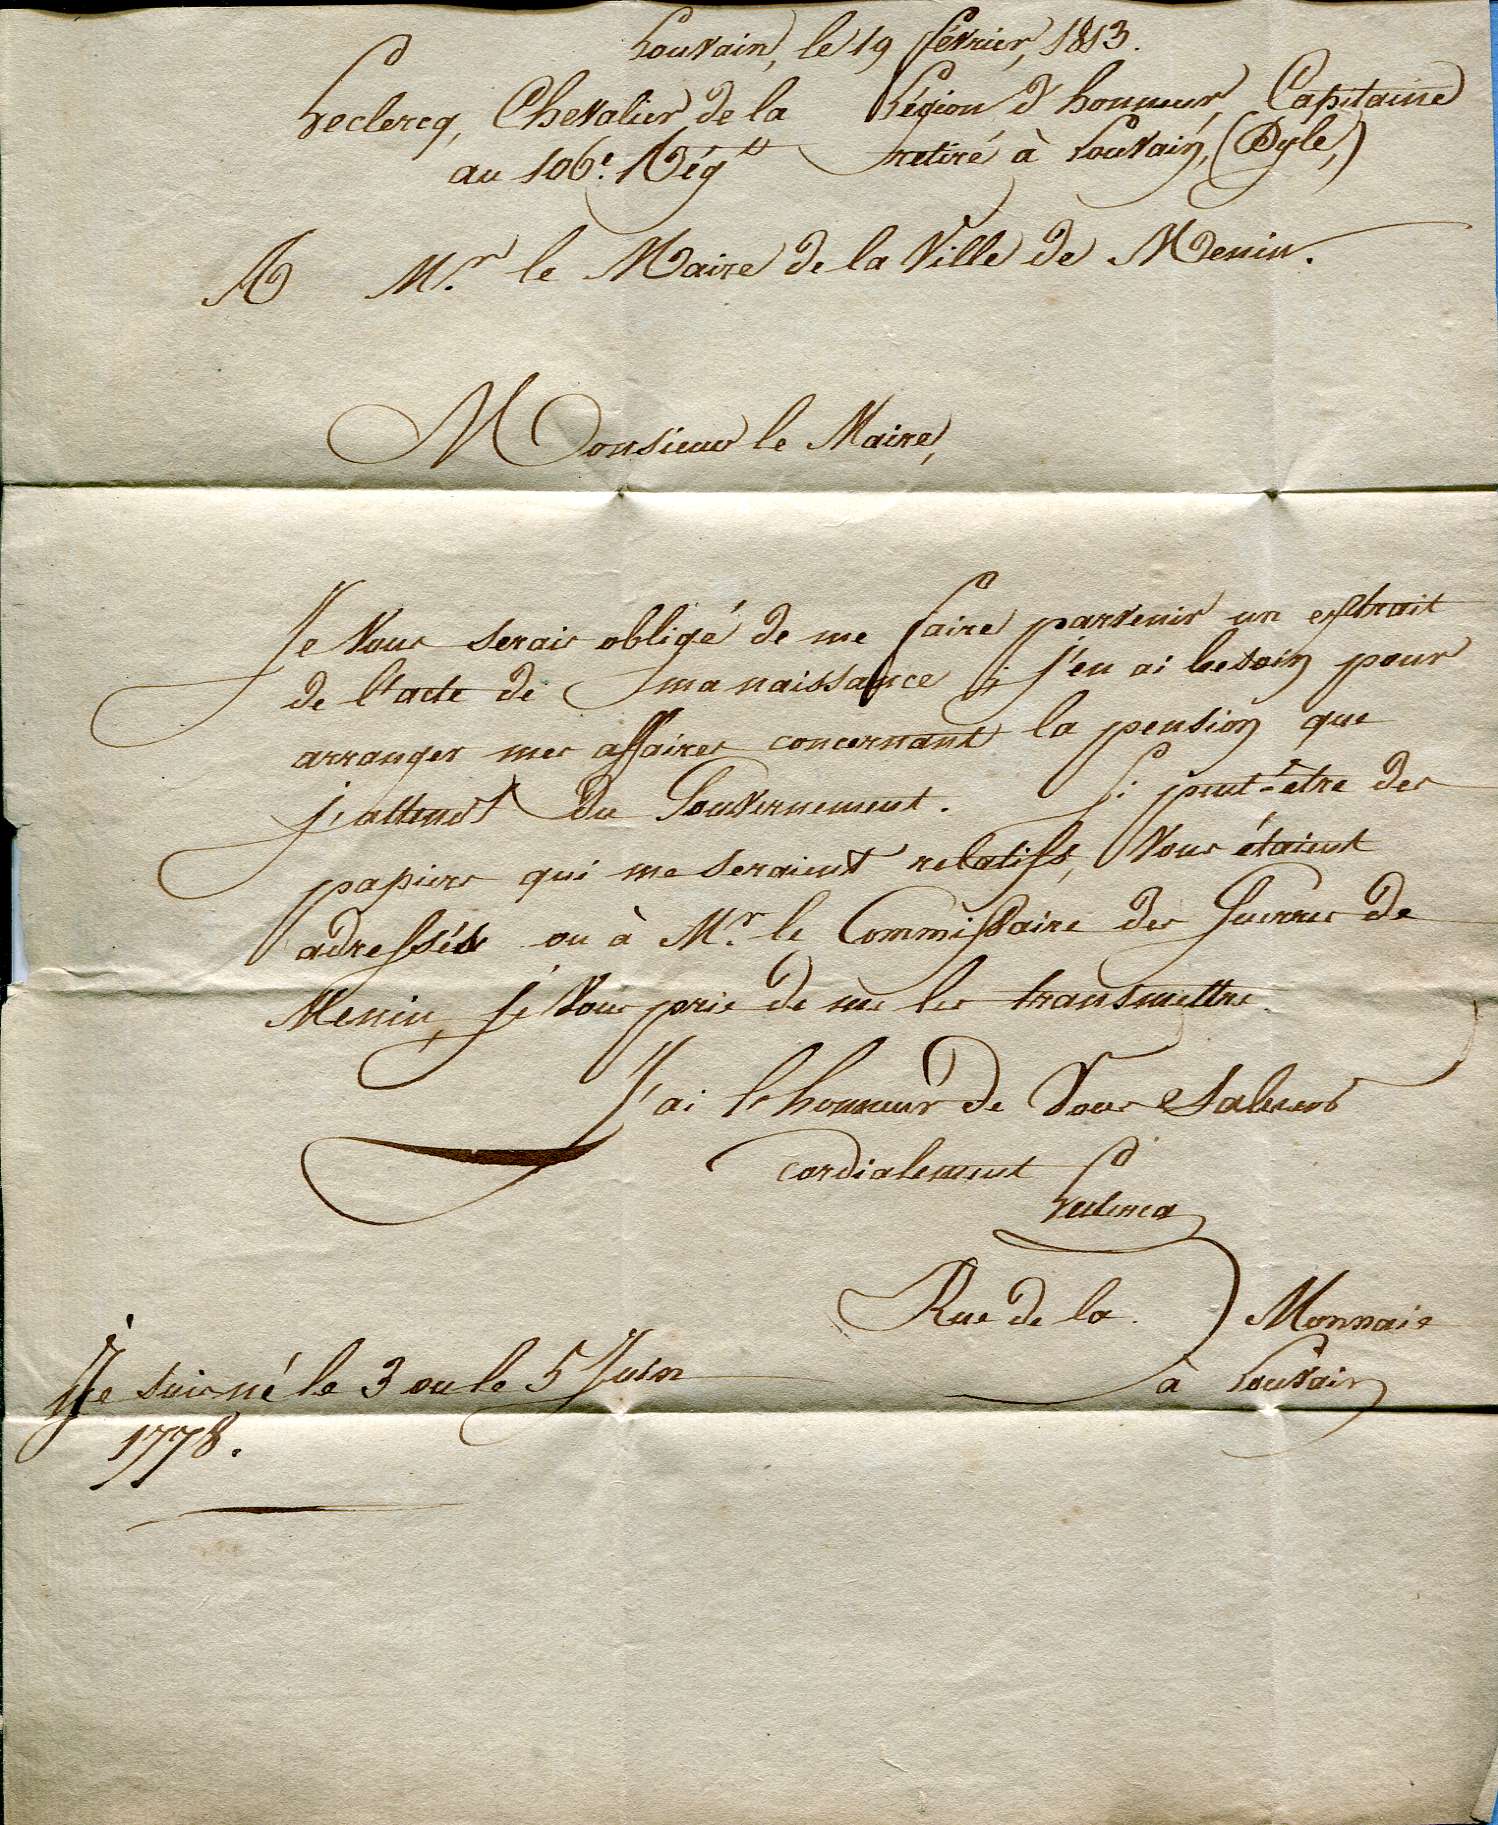 Louvain, le 19 février, 1813.
Leclercq, Chevalier de la Légion d'honneur, Capitaine
au 106e. Régt retiré à Louvain, (Dyle,)
A Mr. le Maire de la Ville de Menin.
Monsieur le Maire,
Je Vous serais obligé de me faire parvenir un extrait
de l'acte de ma naissance ; j'en ai besoin pour
arranger mes affaires concernant la pension que
j'attends du Gouvernement. Si peut-être des
papiers qui me seraient relatifs, Vous étaient
adressés ou à Mr. le Commissaire des Guerres de
Menin, je Vous prie de me les transmettre.
J'ai l'honneur de Vous Saluer
cordialement
Leclercq
Rue de la Monnaie
à Louvain
Je suis né le 3 ou le 5 Juin
1778.